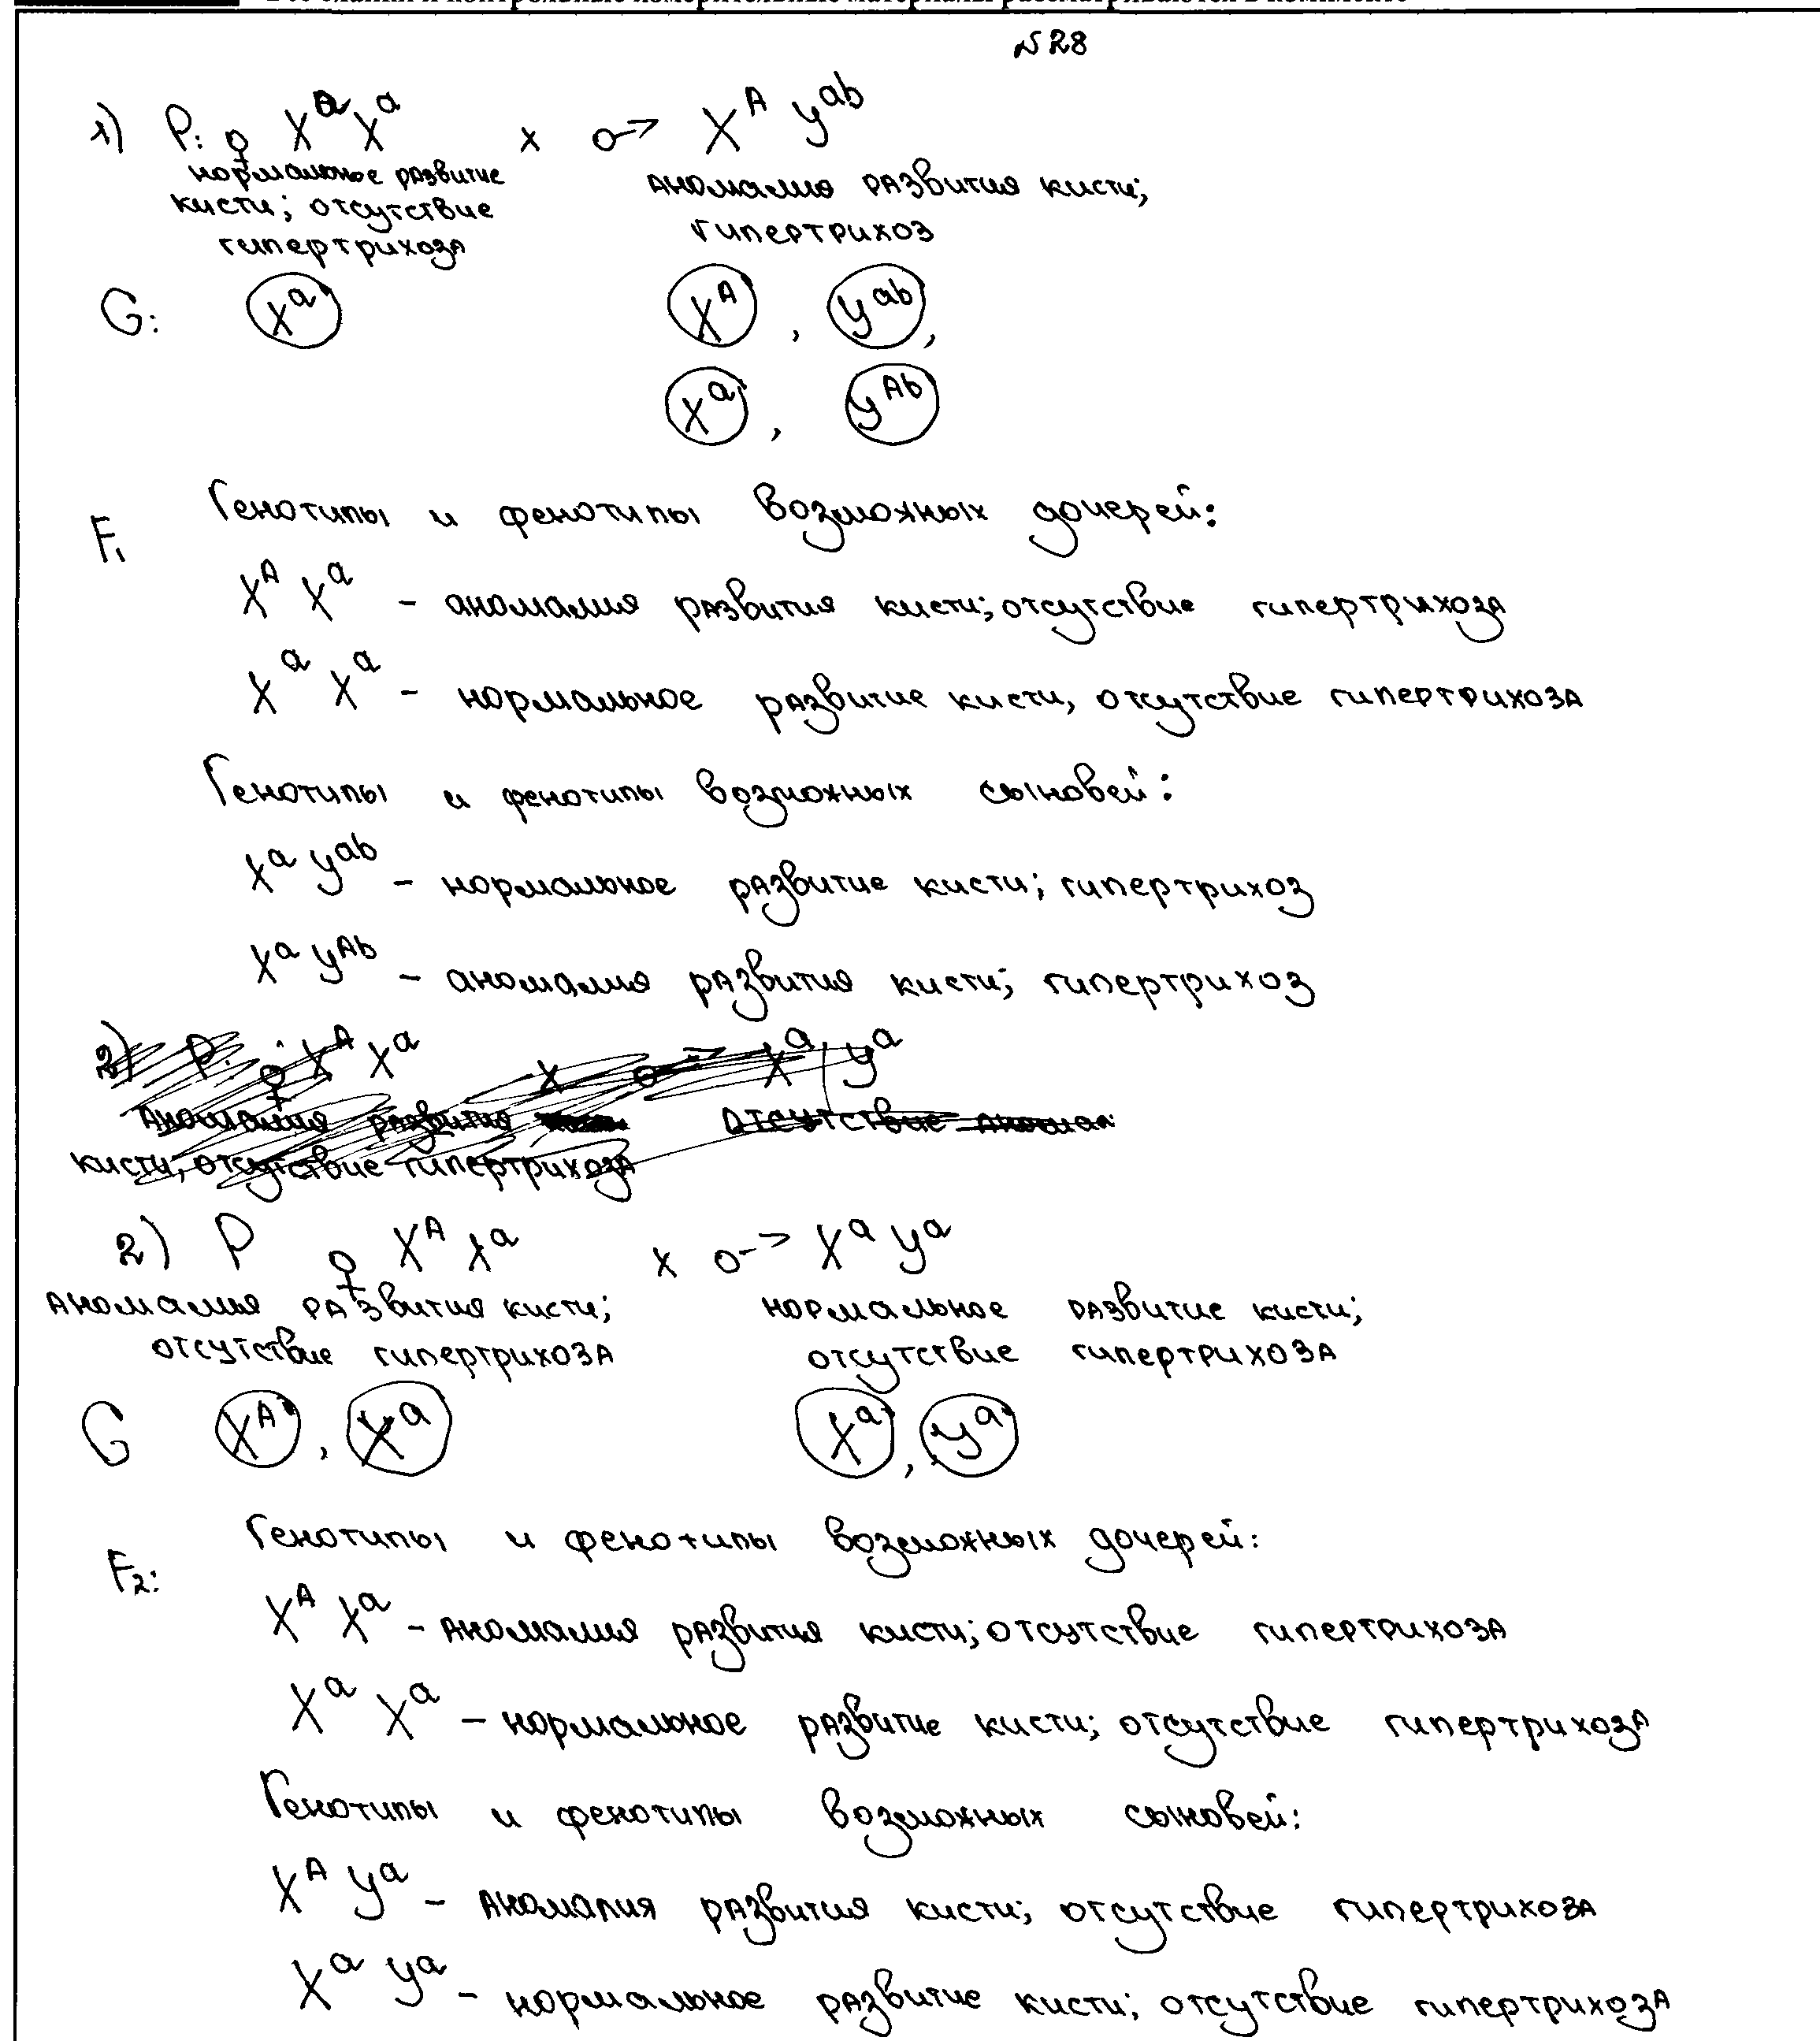 №28
1) P: ♀ X^a X^a x ♂ X^A Y^ab
нормальное развитие
аномалия развития кисти;
кисти; отсутствие
гипертрихоз
гипертрихоза
G: X^a X^A , Y^ab ,
X^a , Y^Ab
F₁ Генотипы и фенотипы возможных дочерей:
X^A X^a – аномалия развития кисти; отсутствие гипертрихоза
X^a X^a – нормальное развитие кисти, отсутствие гипертрихоза
Генотипы и фенотипы возможных сыновей:
X^a Y^ab – нормальное развитие кисти; гипертрихоз
X^a Y^Ab – аномалия развития кисти; гипертрихоз
2) P: ♀ X^A X^a x ♂ X^a Y^a
Аномалия развития отсутствие
кисти, отсутствие гипертрихоза
2) P ♀ X^A X^a x ♂ X^a Y^a
Аномалия развития кисти; нормальное развитие кисти;
отсутствие гипертрихоза отсутствие гипертрихоза
G X^A , X^a X^a , Y^a
F₂: Генотипы и фенотипы возможных дочерей:
X^A X^a – Аномалия развития кисти; отсутствие гипертрихоза
X^a X^a – нормальное развитие кисти; отсутствие гипертрихоза
Генотипы и фенотипы возможных сыновей:
X^A Y^a – Аномалия развития кисти; отсутствие гипертрихоза
X^a Y^a – нормальное развитие кисти; отсутствие гипертрихоза